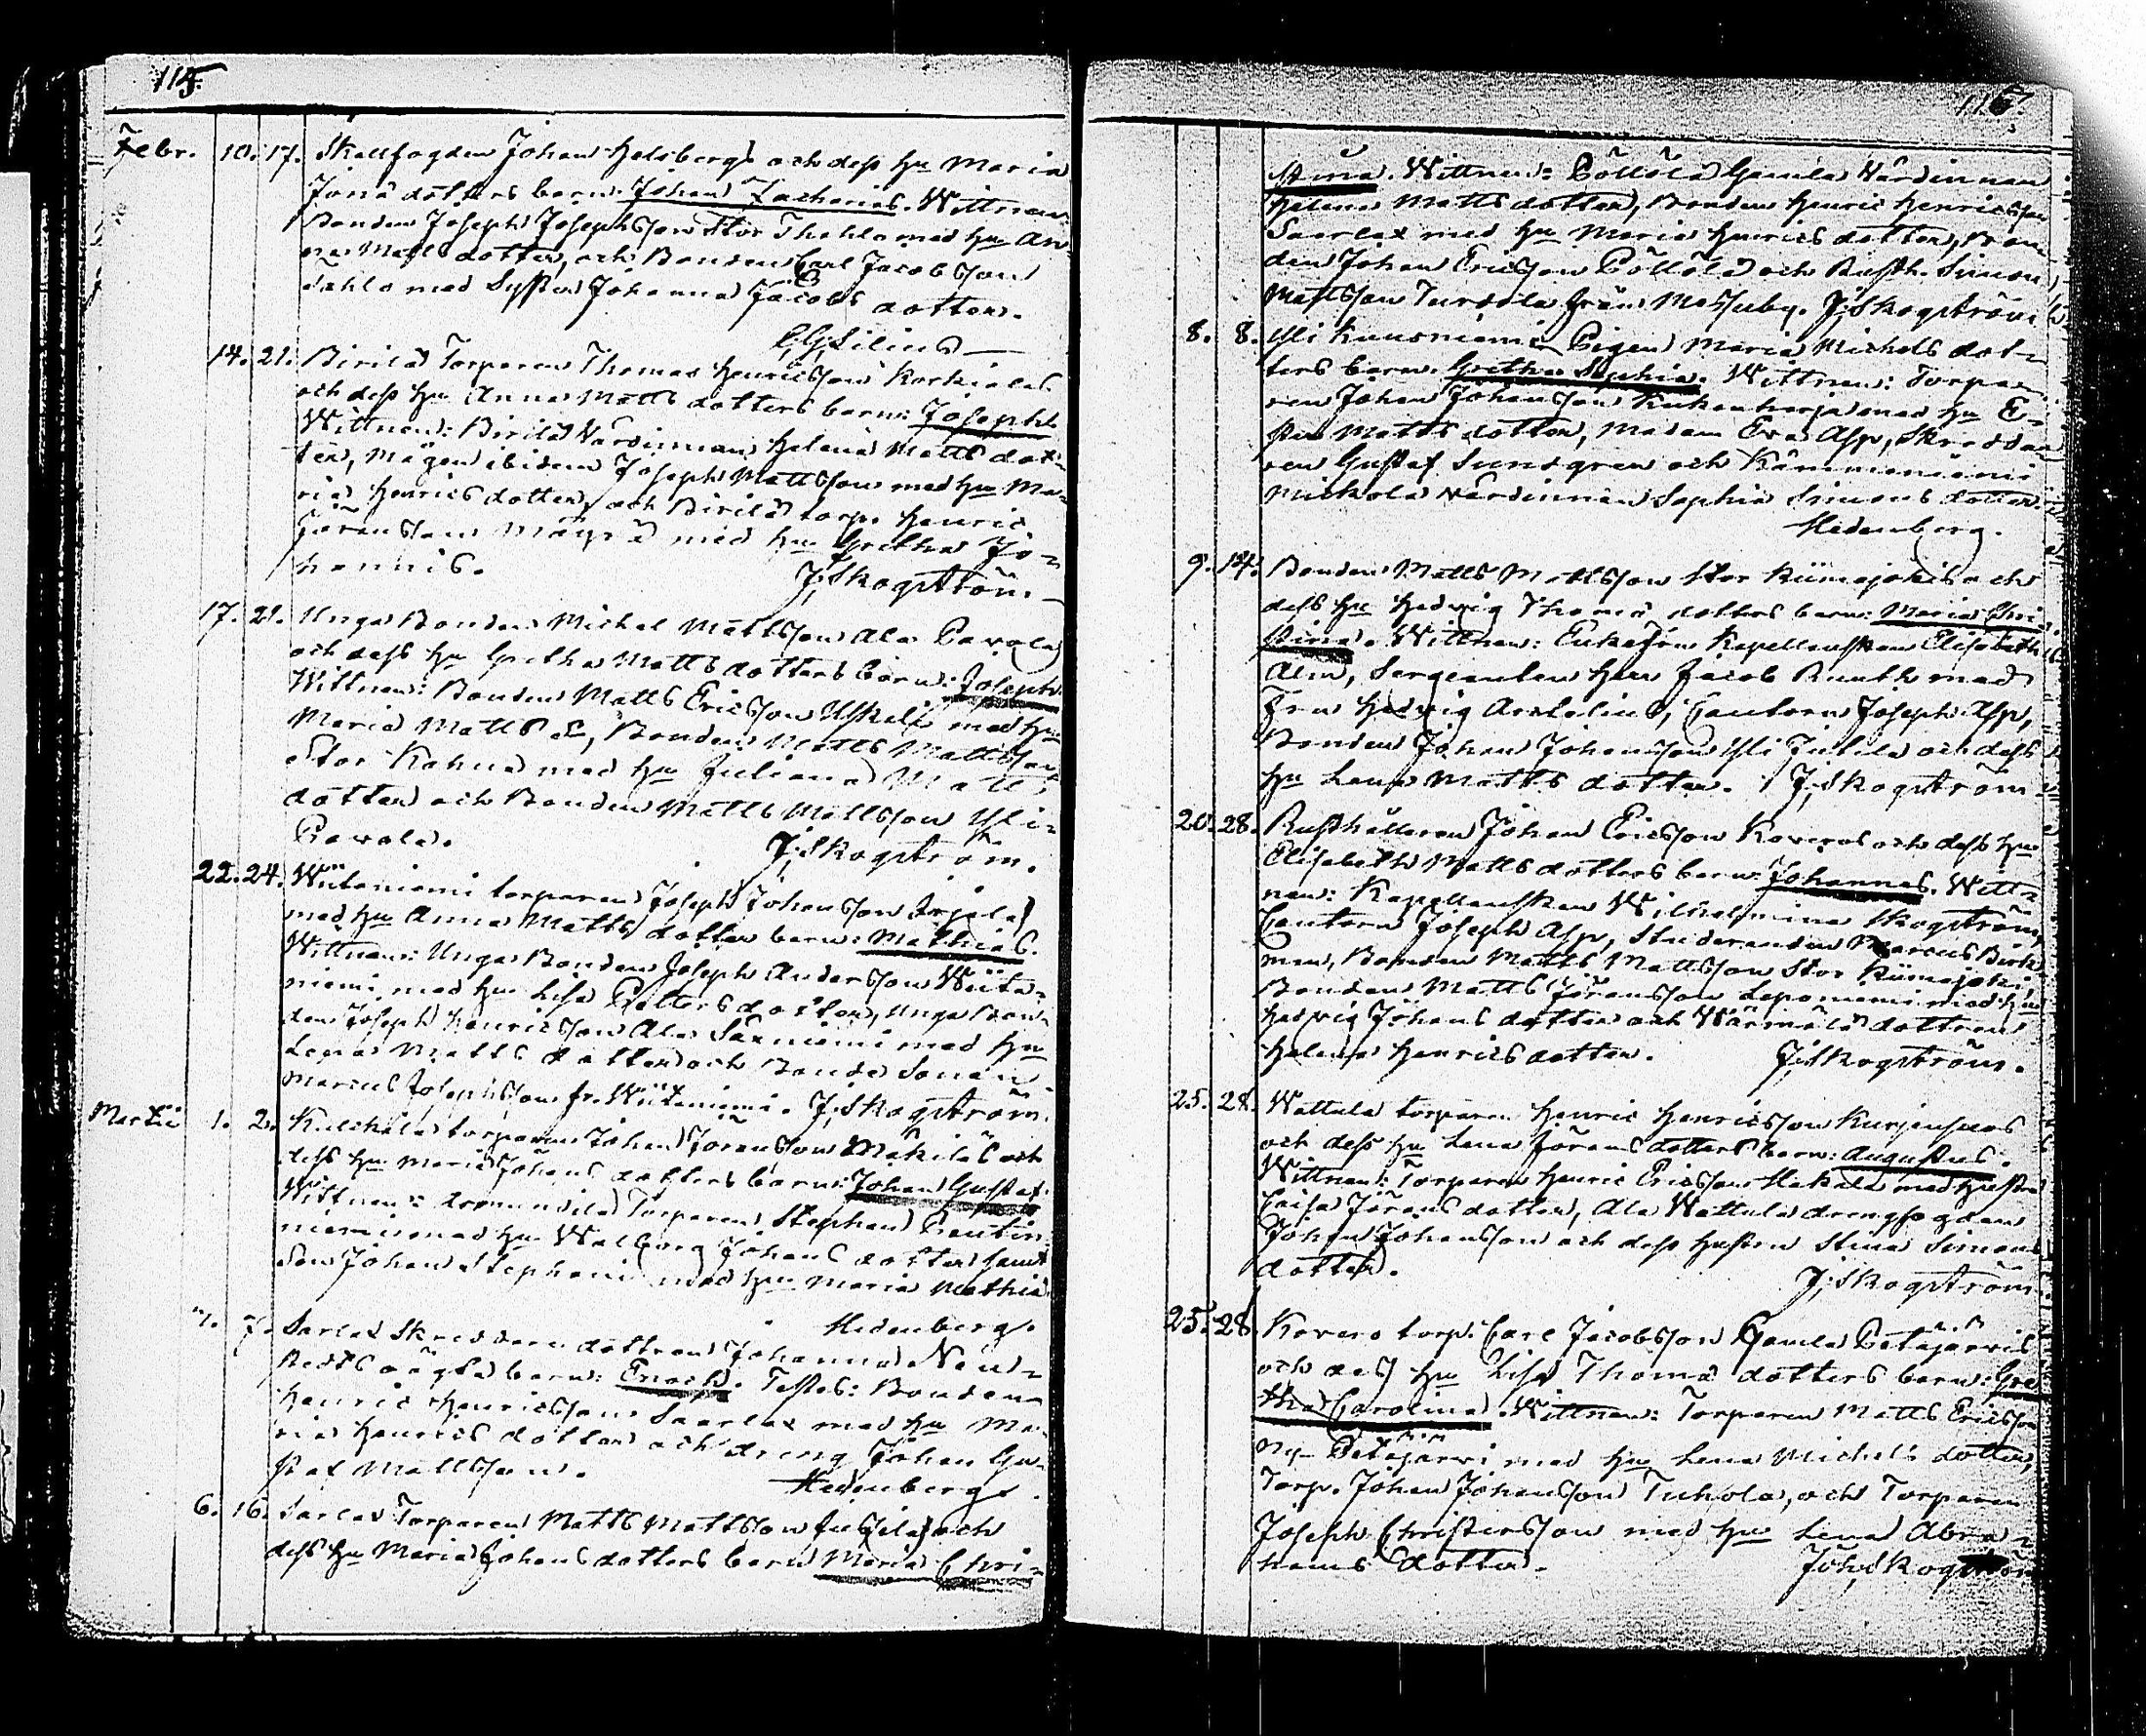 115.
Febr. 10. 17. Skallfogden Johan Helsbergs och dess Hu Maria
Jonæ dotters barn: Johan Zacharias. Wittnen:
Bonden Joseph Josephsson Stor Thahlo med Hu An
na Matts dotter, och Bonden Carl Jacobsson
Tahlo med Syster Johanna Jacobs dotter.
Lilius
14. 21. Birilä Torparen Thomas Henricsson Korkialas
och dess Hu Anna Matts dotters barn: Joseph
Wittnen: Birilä Värdinnan Helena Matts dot-
ter, Mågen ibidem Joseph Mattsson med Hu Ma-
ria Henrics dotter, och Birilä torp. Henric
Göransson Mäyrä med Hu Gretha Jo-
hannis.
J. Skogström
17. 21. Unga Bonden Michel Mattsson Ala Pavola
och dess Hu Gretha Matts dotters barn: Joseph
Wittnen: Bonden Matts Ericsson Uskali med Hu
Maria Matts d, Bonden Matts Mattsson
Stor Kahu med Hu Juliana Matts
dotter och Bonden Matts Mattsson Yli-
Pavola.
J. Skogström.
22. 24. Wiitaniemi torparen Joseph Johansson Irjala
med Hu Anna Matts dotter barn: Mathias.
Wittnen: Unga Bonden Joseph Andersson Wiita-
niemi med Hu Lisa Petters dotter, Unga Bon-
den Joseph Henricsson Ala Saxniemi med Hu
Lena Matts dotter och Bonde Sonen
Marcus Josephsson fr. Wiitaniemi. J. Skogström
Martii 1. 2. torparen Johan Jöransson Mäkiläs och
dess Hu Maria Johans dotters barn: Johan Gustaf.
Wittnen: Torparen Stephan Pentin
niemi med Hu Walborg Johans dotter samt
Son Johan Stephani med Hu Maria Mathiæ
Hedenberg.
7. Sarlax Skreddare dottren Johanna
oägta barn: Enoch. Testes: Bonden
Henric Henricsson Saarlax med Hu Ma-
ria Henrics dotter och dreng Johan Gu-
staf Mattsson.
Hedenberg
6. 16. Sarlax Torparen Matts Mattsson och
dess Hu Maria Johans dotters barn Maria Chri-
116.
stina. Wittnen: Pöllölä Gamla Värdinnan
Helena Matts dotter, Bonden Henric Henricsson
Saarlax med Hu Maria Henrics dotter, Bon-
den Johan Ericsson Pöllölä och Rusth. Simon
Mattsson Turvola från Messuby. J. Skogström
8. 8. Yli Kuusniemi Pigan Maria Michels dot-
ters barn: Gretha Sophia. Wittnen: Torpa-
ren Johan Johansson Kukonharja med Hu E-
ster Matts dotter, Madam Eva Asp, Skredda-
ren Gustaf Sundgren och Kämmenniemi
Mickola värdinnan Sophia Simons dotter.
Hedenberg.
9. 14. Bonden Matts Mattsson Stor Kiimajokis och
dess Hu Hedvig Thomæ dotters barn: Maria Chri-
stina. Wittnen: Enkefru Kapellanskan Elisabeth
Alm, Sergeanten Herr Jacob Ruuth med
Fru Hedvig Arxtolius, Cantorn Joseph Asp,
Bonden Johan Johansson Yli Juttila och dess
Hu Lena Matts dotter. J. Skogström
20. 28. Rusthållaren Johan Ericsson Koveros och dess Hu
Elisabeth Matts dotters barn: Johannes. Witt-
nen: Kapellanskan Wilhelmina Skogström,
Cantorn Joseph Asp, Studeranden Marcus Björk-
man, Bonden Matts Mattsson Stor Kiimajoki,
Bonden Matts Jöransson Leponiemi med Hu
Hedvig Johans dotter och Wärmälä dottren
Helena Henrics dotter. J. Skogström.
25. 28. Wattula torparen Henric Henricsson Kurjensuos
och dess Hu Lena Jörans dotters barn: Augustus.
Wittnen: Torparen Henric Ericsson Hakala med Hustru
Caisa Jörans dotter, Ala Wattula drengfogden
Johan Johansson och dess Hustru Stina Simons
dotter.
J. Skogström
25. 28. Kovero torp. Carl Jacobsson Gamla Petäjärvis
och dess Hu Lisa Thomæ dotters barn: Gre
tha Carolina. Wittnen: Torparen Matts Ericsson
Ny-Petäjärvi med Hu Lena Michels dotter,
Torp. Johan Johansson Tuhola, och Torparen
Joseph Christersson med Hu Lena Abra-
hams dotter. Joh. Skogström